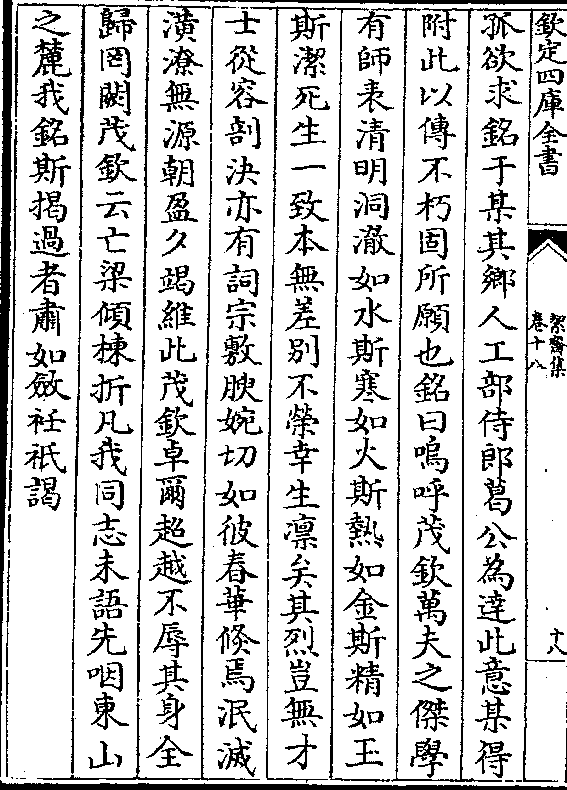 欽定四庫全書
絜齋集
卷十八
十八
孤欲求銘于某其鄉人工部侍郎葛公為逹此意某得
附此以傳不朽固所願也銘曰嗚呼茂欽萬夫之傑學
有師表清明洞澈如水斯寒如火斯熱如金斯精如玉
斯潔死生一致本無差別不榮幸生凛矣其烈豈無才
士從容剖決亦有詞宗敷腴婉切如彼春華倐焉泯滅
潢潦無源朝盈夕竭維此茂欽卓爾超越不辱其身全
歸罔闕茂欽云亡梁傾棟折凡我同志未語先咽東山
之麓我銘斯揭過者肅如斂衽祇謁